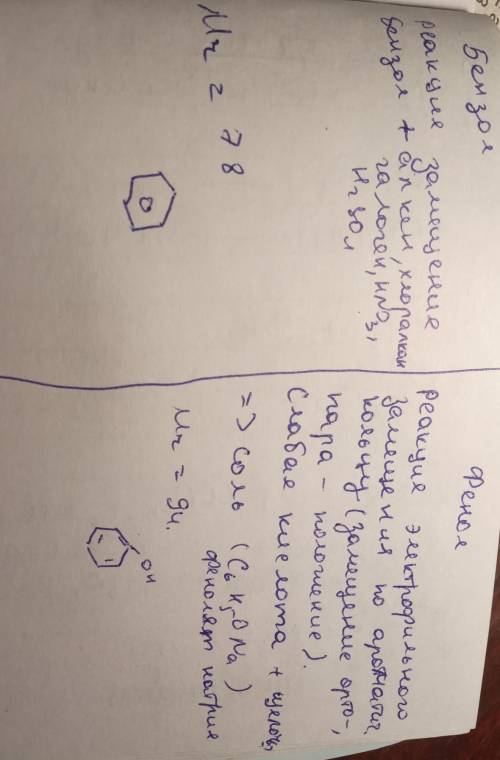 Бензол
реакция замещение
бензол + алкен, хлоралкан
галоген, HNO3,
H2SO4
Mr = 78
Фенол
реакция электрофильного
замещения по ароматич.
кольцу (замещение орто-,
пара - положение).
Слабая кислота + щелочь
=> соль (C6H5ONa)
фенолят натрия
Mr = 94.
OH